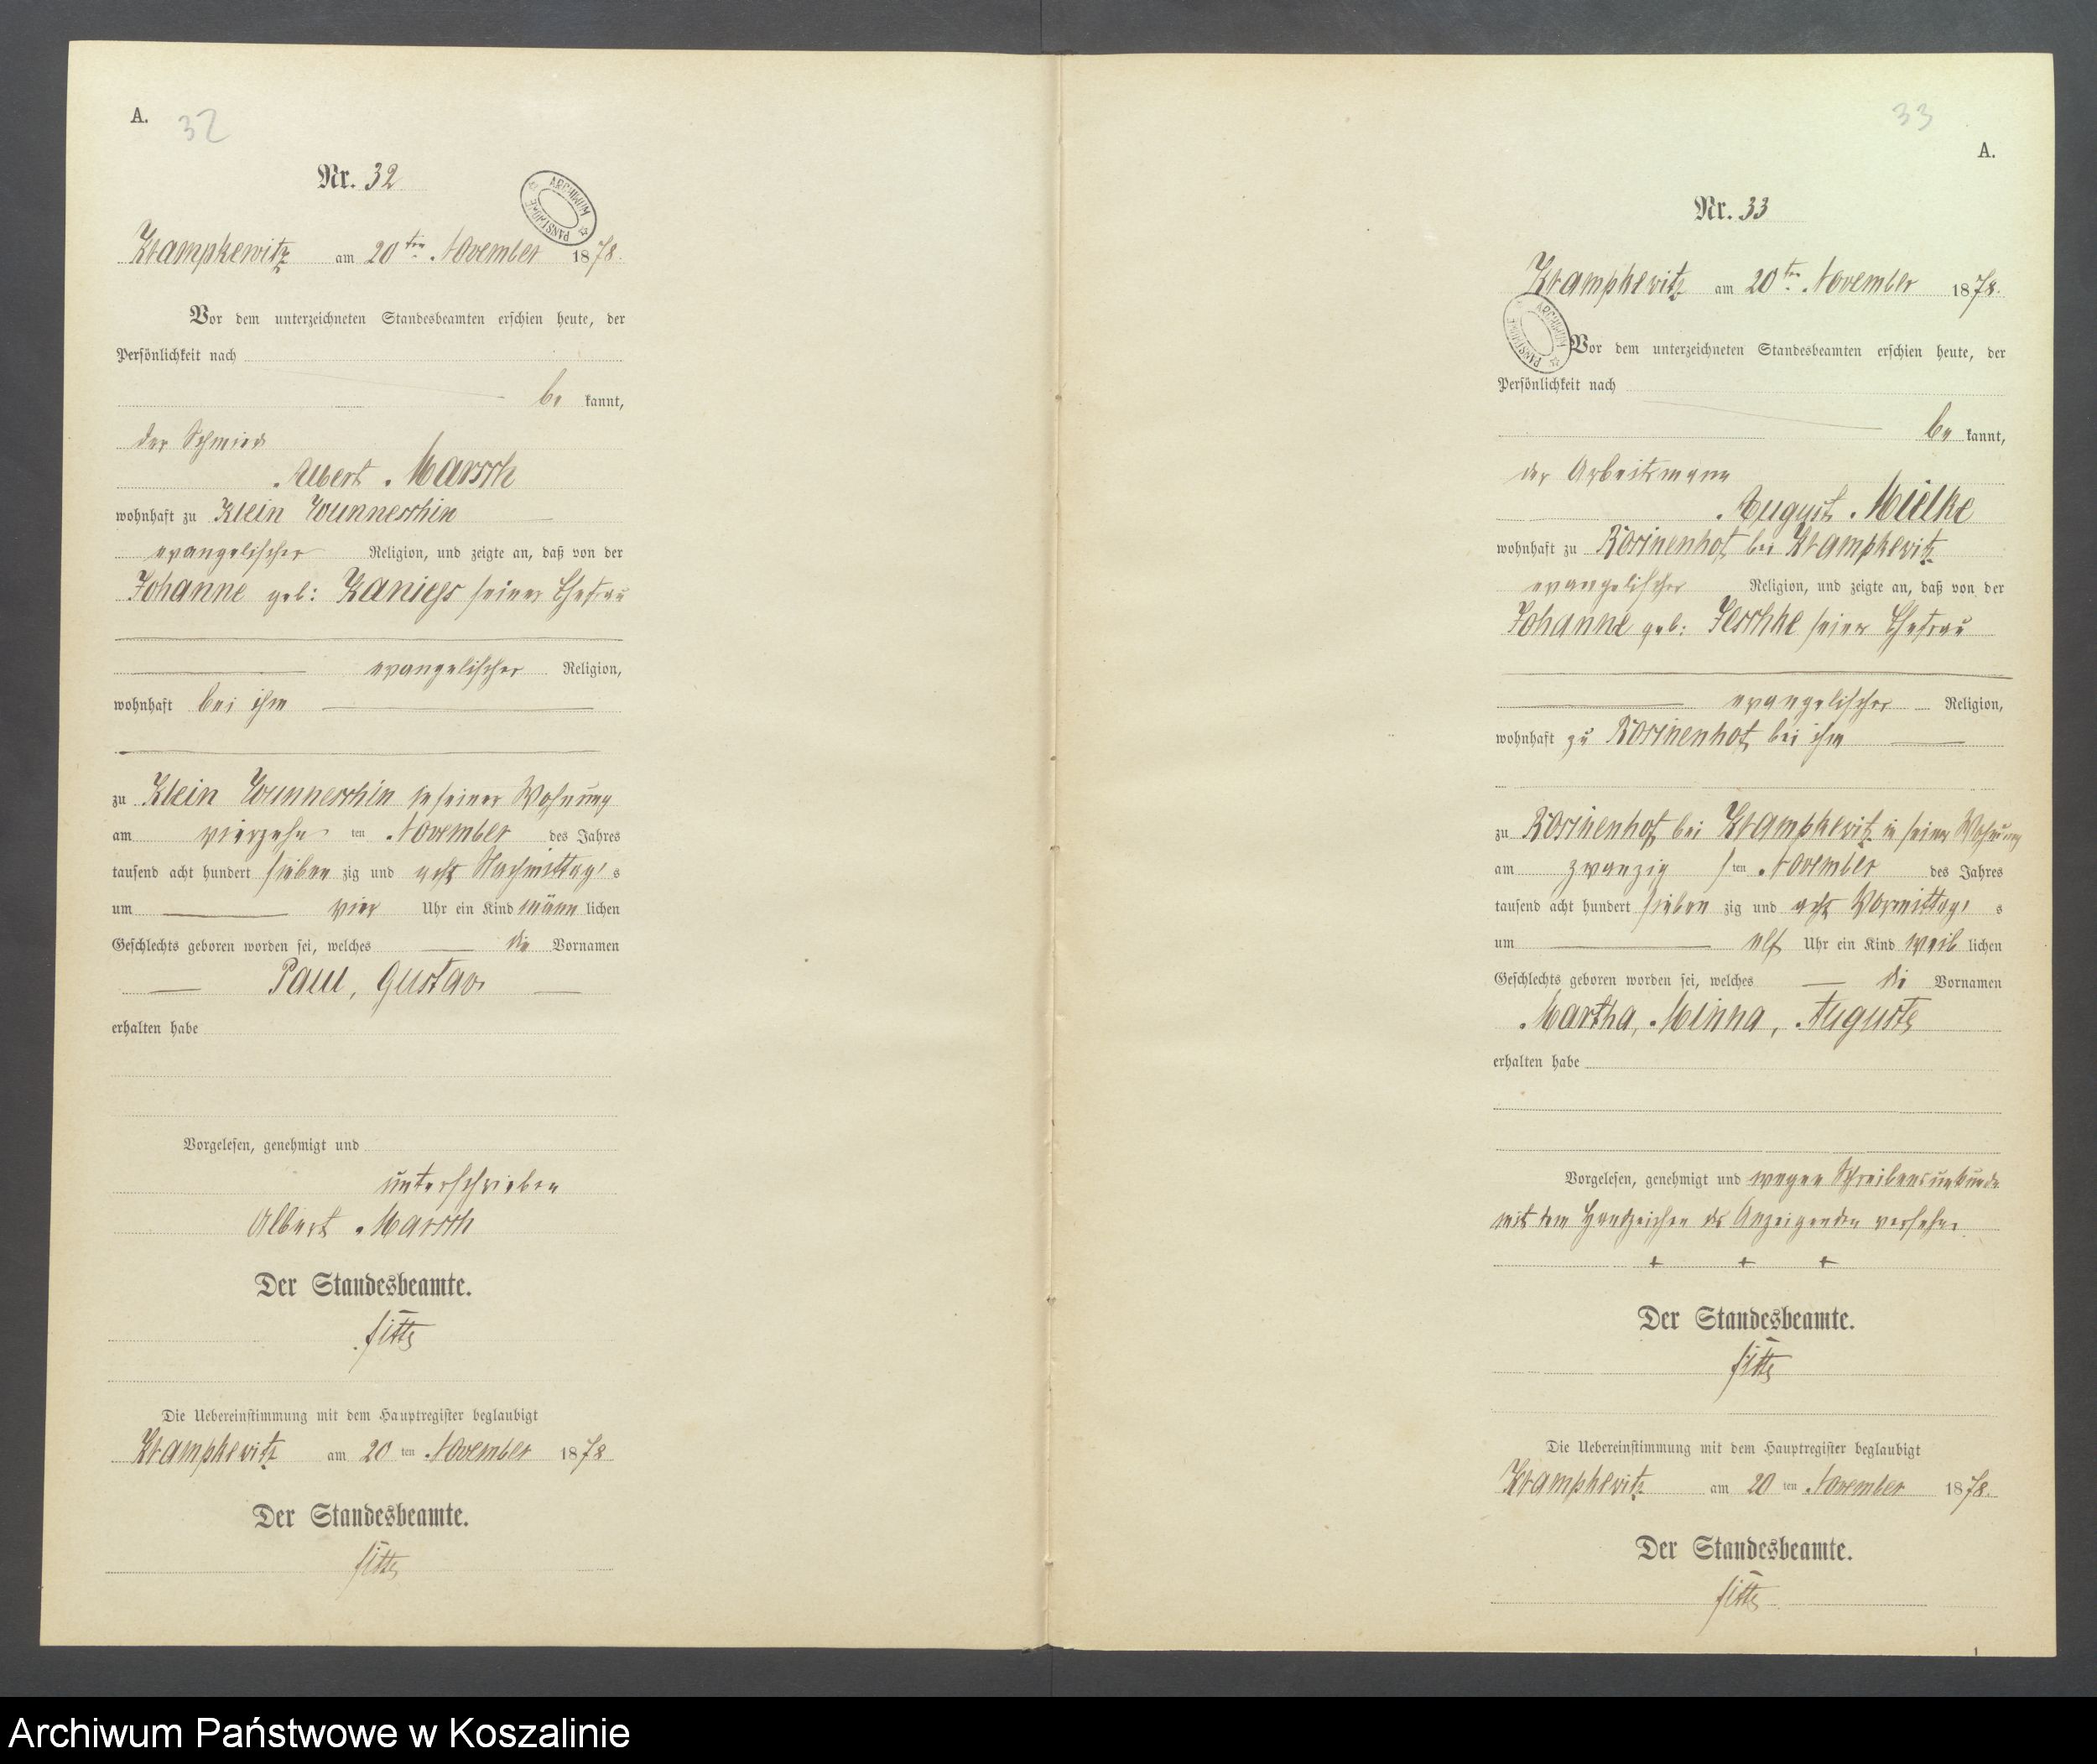 A. 32
Nr. 32
ARCHIWUM PAŃSTWOWE
Krampkewitz am 20ten November 1878.
Vor dem unterzeichneten Standesbeamten erschien heute, der
Persönlichkeit nach
be kannt,
der Schmied
Albert Marsch
wohnhaft zu Klein Wunneschin
evangelischer Religion, und zeigte an, daß von der
Johanne geb: seiner Ehefrau
evangelischer Religion,
wohnhaft bei ihm
zu Klein Wunneschin in seiner Wohnung
am vierzehn ten November des Jahres
tausend acht hundert sieben zig und acht Nachmittags
um vier Uhr ein Kind männ lichen
Geschlechts geboren worden sei, welches die Vornamen
Paul, Gustav
erhalten habe
Vorgelesen, genehmigt und
unterschrieben
Albert Marsch
Der Standesbeamte.
Die Uebereinstimmung mit dem Hauptregister beglaubigt
Krampkewitz am 20 ten November 1878
Der Standesbeamte.
33
A.
Nr. 33
Krampkewitz am 20ten November 1878.
ARCHIWUM PAŃSTWOWE
Vor dem unterzeichneten Standesbeamten erschien heute, der
Persönlichkeit nach
be kannt,
der Arbeitsmann
August Mielke
wohnhaft zu Rosinenhof bei Krampkewitz
evangelischer Religion, und zeigte an, daß von der
Johanne geb: Jeschke seiner Ehefrau
evangelischer Religion,
wohnhaft zu Rosinenhof bei ihm
zu Rosinenhof bei Krampkewitz in seiner Wohnung
am zwanzig sten November des Jahres
tausend acht hundert sieben zig und acht Vormittags
um elf Uhr ein Kind weib lichen
Geschlechts geboren worden sei, welches die Vornamen
Martha, Minna, Auguste
erhalten habe
Vorgelesen, genehmigt und wegen Schreibensunkunde
mit dem Handzeichen des Anzeigenden versehen
+ + +
Der Standesbeamte.
Die Uebereinstimmung mit dem Hauptregister beglaubigt
Krampkewitz am 20 ten November 1878.
Der Standesbeamte.
Archiwum Państwowe w Koszalinie